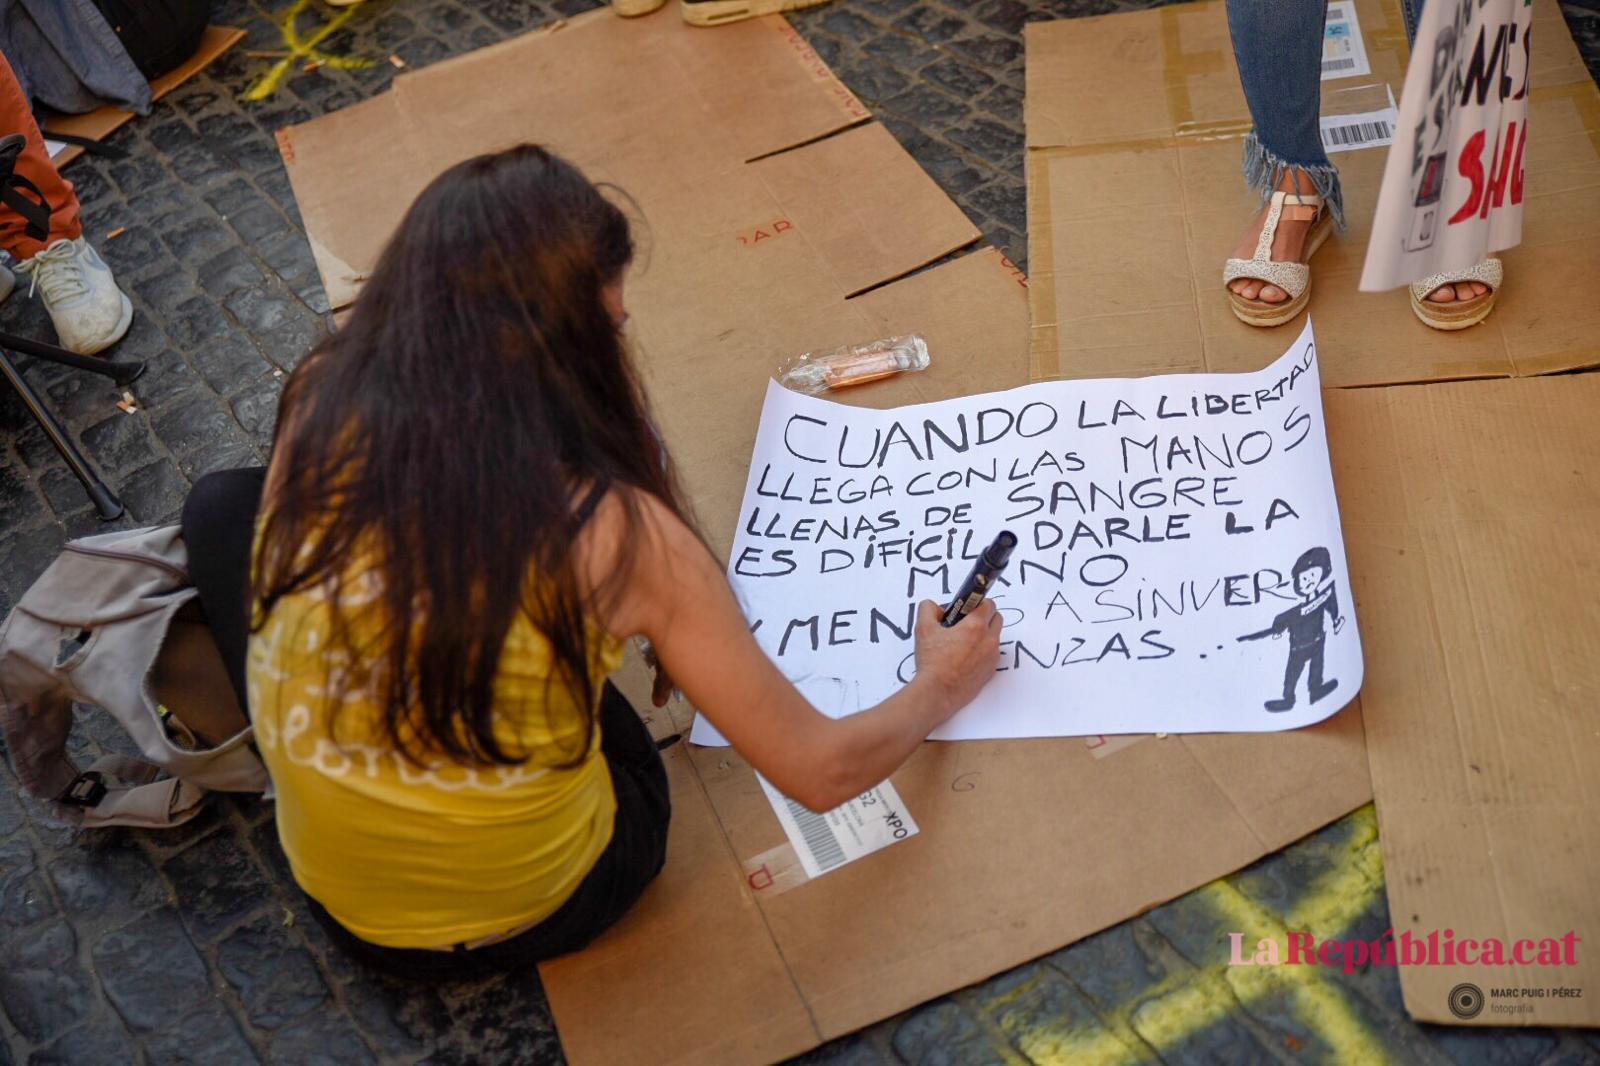 CUANDO LA LIBERTAD
LLEGA CON LAS MANOS
LLENAS DE SANGRE
ES DIFICIL DARLE LA
MANO
Y MENOS A SINVER-
ENZAS...
SANG
XPO
G2
G
La República.cat
MARC PUIG I PÉREZ
fotografia